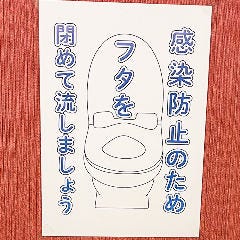 感染防止のため
フタを
閉めて流しましょう